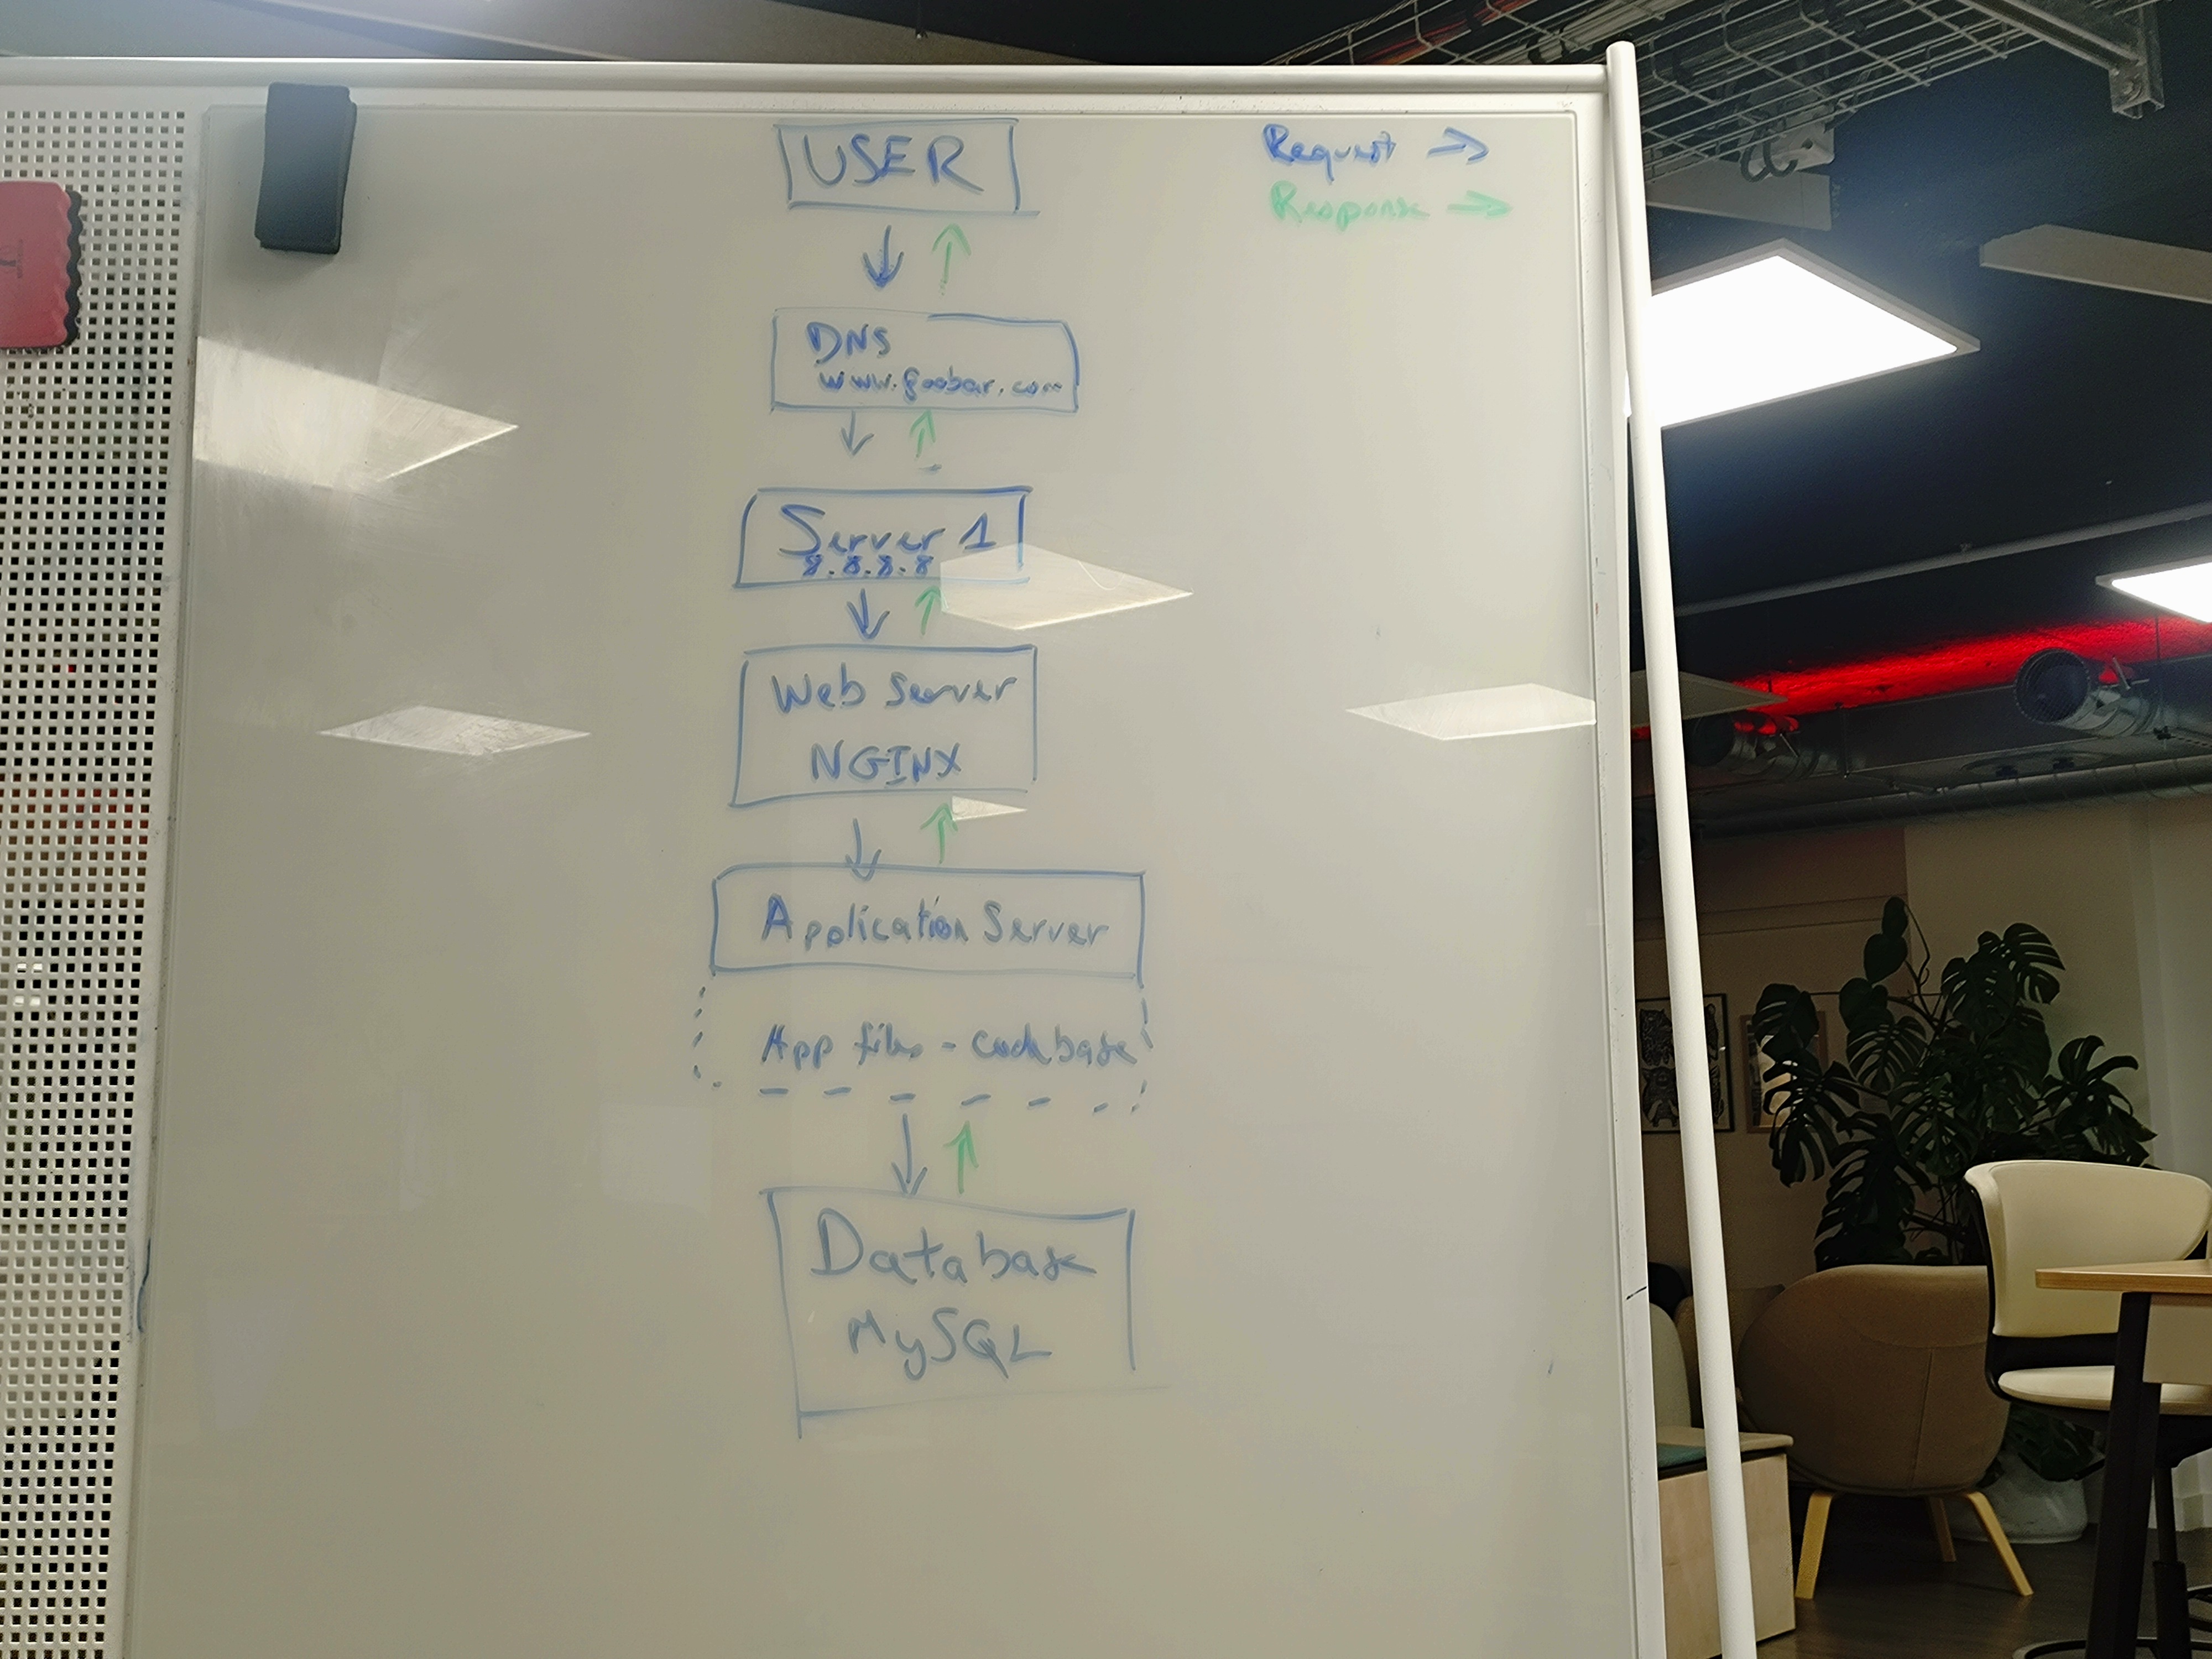 USER
Request →
Response →
DNS
www.foobar.com
Server 1
8.8.8.8
Web Server
NGINX
Application Server
App files - codebase
Database
MySQL